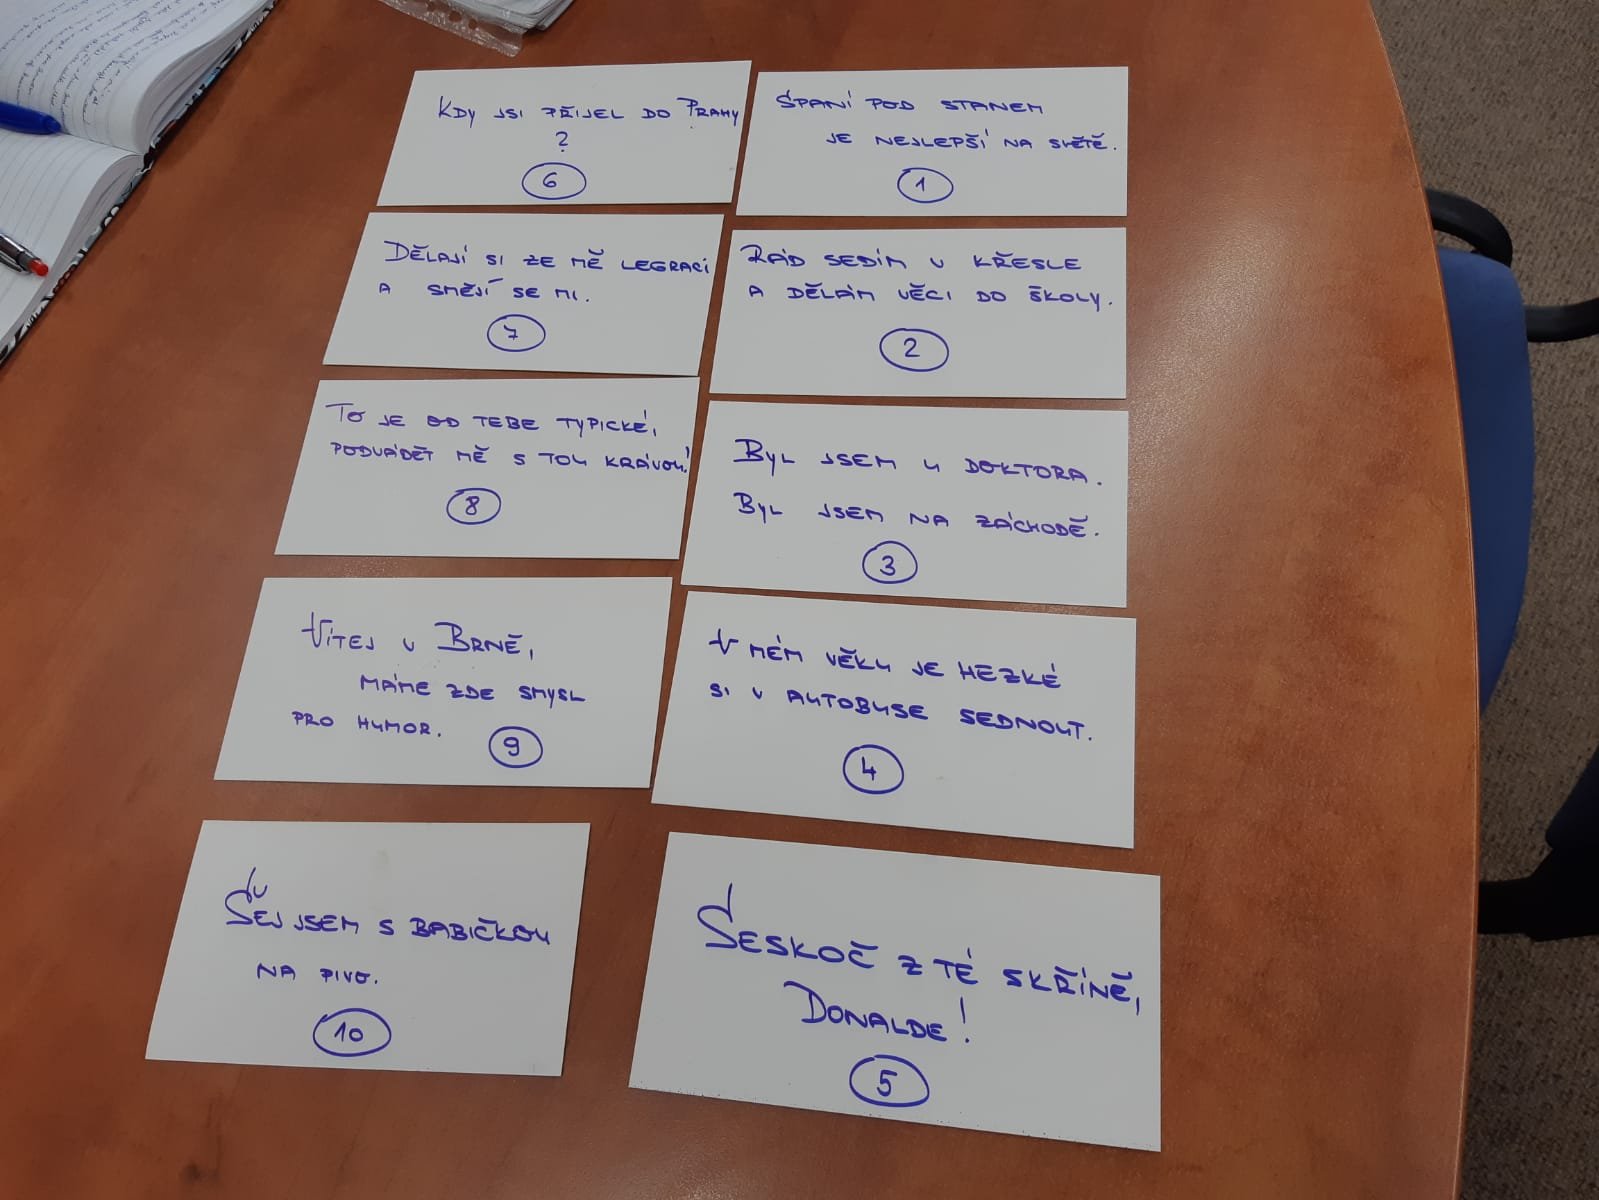 Kdy jsi přijel do Prahy
?
6
Spaní pod stanem
je nejlepší na světě.
1
Dělají si ze mě legraci
a smějí se mi.
7
Rád sedím v křesle
a dělám věci do školy.
2
To je od tebe typické,
podvádět mě s tou krávou!
8
Byl jsem u doktora.
Byl jsem na záchodě.
3
Vítej v Brně,
máme zde smysl
pro humor.
9
V mém věku je hezké
si v autobuse sednout.
4
Šej jsem s babičkou
na pivo.
10
Seskoč z té skříně,
Donalde!
5